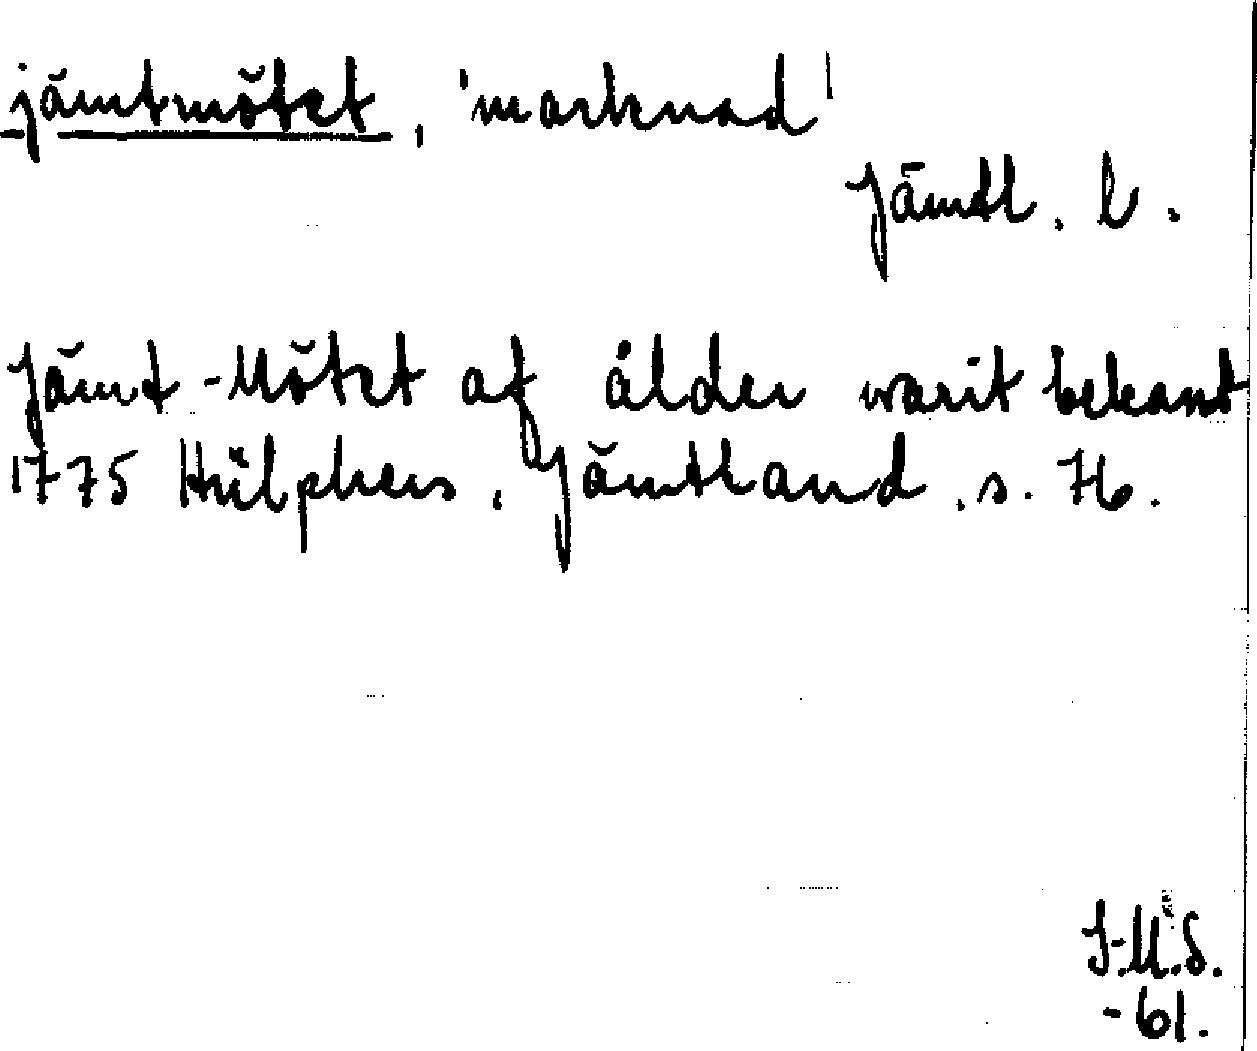 jämtmötet, 'marknad'
Jämtl. l.
Jämt-Mötet af ålder warit bekant
1775 Hülphers, Jämtland, s. 76.
I.M.S.
-61.